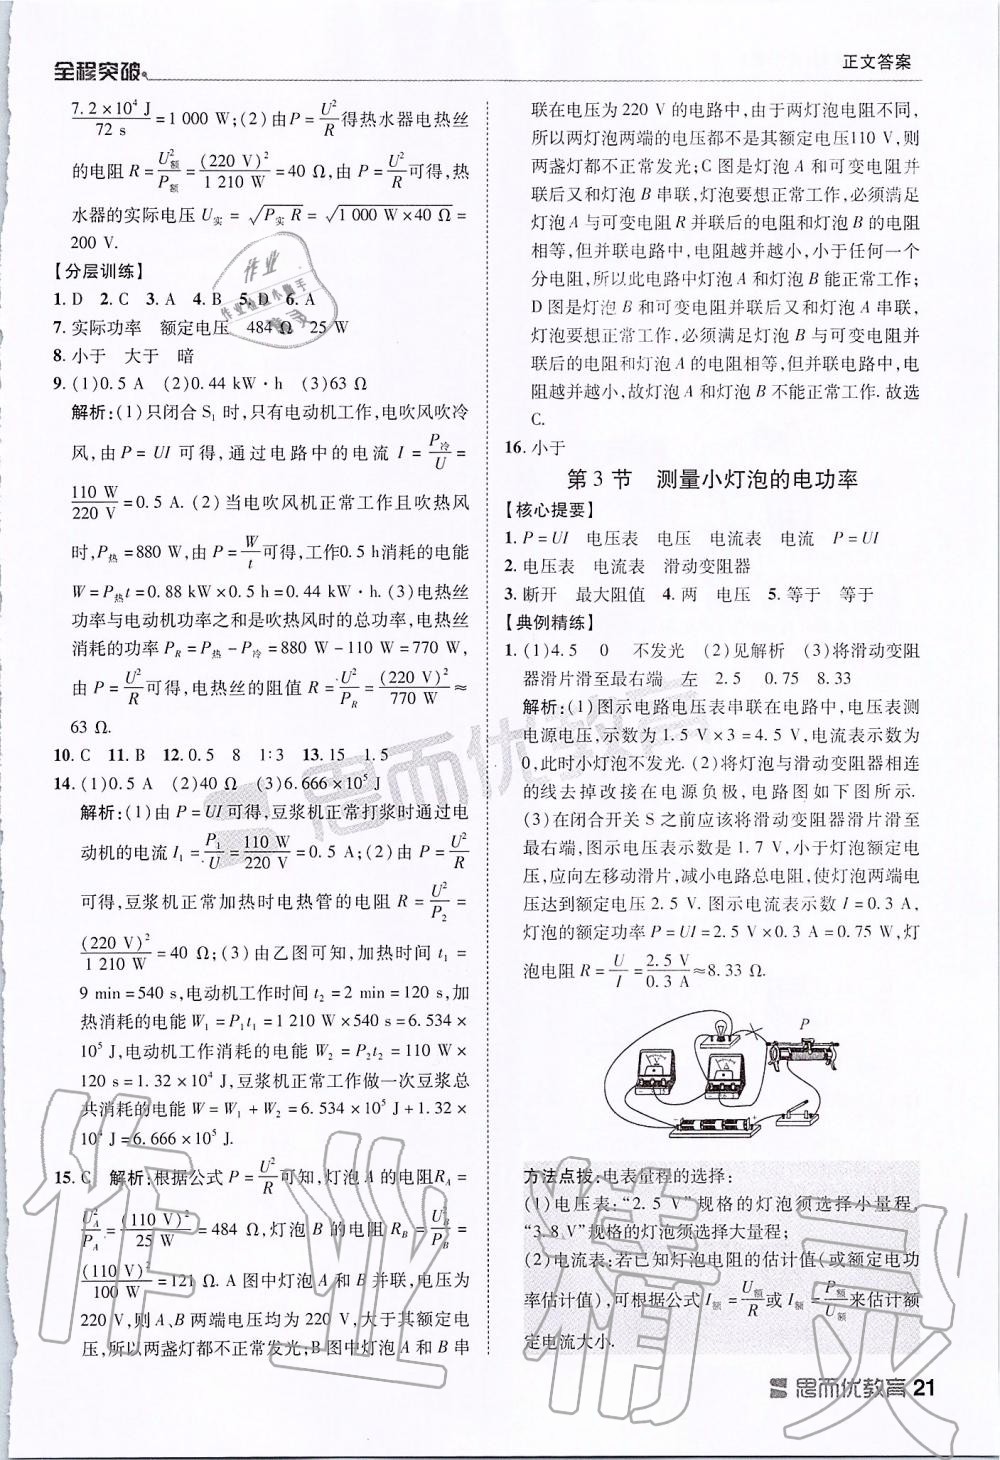 全程突破
正文答案
7.2×10⁴ J/72 s=1 000 W;(2)由P=U²/R得热水器电热丝
的电阻R=U额²/P额=(220 V)²/1 210 W=40 Ω,实际功率为1 000 W时,热
水器的实际电压U实=√(P实R)=√(1 000 W×40 Ω)=
200 V.
【分层训练】
1. D 2. C 3. A 4. B 5. D 6. A
7. 实际功率 额定电压 484 Ω 25 W
8. 小于 大于 暗
9. (1)0.5 A (2)0.44 kW·h (3)63 Ω
解析:(1)只闭合S₁时,只有电动机工作,电吹风吹冷
风,由P=UI可得,通过电路中的电流I=P冷/U=
110 W/220 V=0.5 A. (2)当电吹风机正常工作且吹热风
时,P热=880 W,由P=W/t可得,工作0.5 h消耗的电能
W=P热t=0.88 kW×0.5 h=0.44 kW·h. (3)电热丝
功率与电动机功率之和是吹热风时的总功率,电热丝
消耗的功率P_R=P热-P冷=880 W-110 W=770 W,
由P=U²/R可得,电热丝的阻值R=U²/P_R=(220 V)²/770 W≈
63 Ω.
10. C 11. B 12. 0.5 8 1:3 13. 15 1.5
14. (1)0.5 A (2)40 Ω (3)6.666×10⁵ J
解析:(1)由P=UI可得,豆浆机正常打浆时通过电
动机的电流I₁=P₁/U=110 W/220 V=0.5 A;(2)由P=U²/R
可得,豆浆机正常加热时电热管的电阻R=U²/P₂=
(220 V)²/1 210 W=40 Ω;(3)由乙图可知,加热时间t₁=
9 min=540 s,电动机工作时间t₂=2 min=120 s,加
热消耗的电能W₁=P₁t₁=1 210 W×540 s=6.534×
10⁵ J,电动机工作消耗的电能W₂=P₂t₂=110 W×
120 s=1.32×10⁴ J,豆浆机正常工作做一次豆浆总
共消耗的电能W=W₁+W₂=6.534×10⁵ J+1.32×
10⁴ J=6.666×10⁵ J.
15. C 解析:根据公式P=U²/R可知,灯泡A的电阻R_A=
U_A²/P_A=(110 V)²/25 W=484 Ω,灯泡B的电阻R_B=U_B²/P_B=
(110 V)²/100 W=121 Ω. A图中灯泡A和B并联,电压为
220 V,则A、B两端电压均为220 V,大于其额定电
压,所以两盏灯都不正常发光;B图中灯泡A和B串
联在电压为220 V的电路中,由于两灯泡电阻不同,
所以两灯泡两端的电压都不是其额定电压110 V,则
两盏灯都不正常发光;C图是灯泡A和可变电阻并
联后又和灯泡B串联,灯泡要想正常工作,必须满足
灯泡A与可变电阻R并联后的电阻和灯泡B的电阻
相等,但并联电路中,电阻越并越小,小于任何一个
分电阻,所以此电路中灯泡A和灯泡B能正常工作;
D图是灯泡B和可变电阻并联后又和灯泡A串联,
灯泡要想正常工作,必须满足灯泡B与可变电阻R
并联后的电阻和灯泡A的电阻相等,但并联电路中,电
阻越并越小,故灯泡A和灯泡B不能正常工作. 故选
C.
16. 小于
第3节 测量小灯泡的电功率
【核心提要】
1. P=UI 电压表 电压 电流表 电流 P=UI
2. 电压表 电流表 滑动变阻器
3. 断开 最大阻值 4. 两 电压 5. 等于 等于
【典例精练】
1. (1)4.5 0 不发光 (2)见解析 (3)将滑动变阻
器滑片滑至最右端 左 2.5 0.75 8.33
解析:(1)图示电路电压表串联在电路中,电压表测
电源电压,示数为1.5 V×3=4.5 V,电流表示数为
0,此时小灯泡不发光. (2)将灯泡与滑动变阻器相连
的线去掉改接在电源负极,电路图如下图所示.
(3)在闭合开关S之前应该将滑动变阻器滑片滑至
最右端,图示电压表示数是1.7 V,小于灯泡额定电
压,应向左移动滑片,减小电路总电阻,使灯泡两端电
压达到额定电压2.5 V. 图示电流表示数I=0.3 A,
灯泡的额定功率P=UI=2.5 V×0.3 A=0.75 W,灯
泡电阻R=U/I=2.5 V/0.3 A≈8.33 Ω.
P
方法点拨:电表量程的选择:
(1)电压表:“2.5 V”规格的灯泡须选择小量程,
“3.8 V”规格的灯泡须选择大量程;
(2)电流表:若已知灯泡电阻的估计值(或额定电功
率估计值),可根据公式I额=U额/R或I额=P额/U额来估计额
定电流大小.
思而优教育 21
思而优教育
作业精灵
作业
作业检查小助手